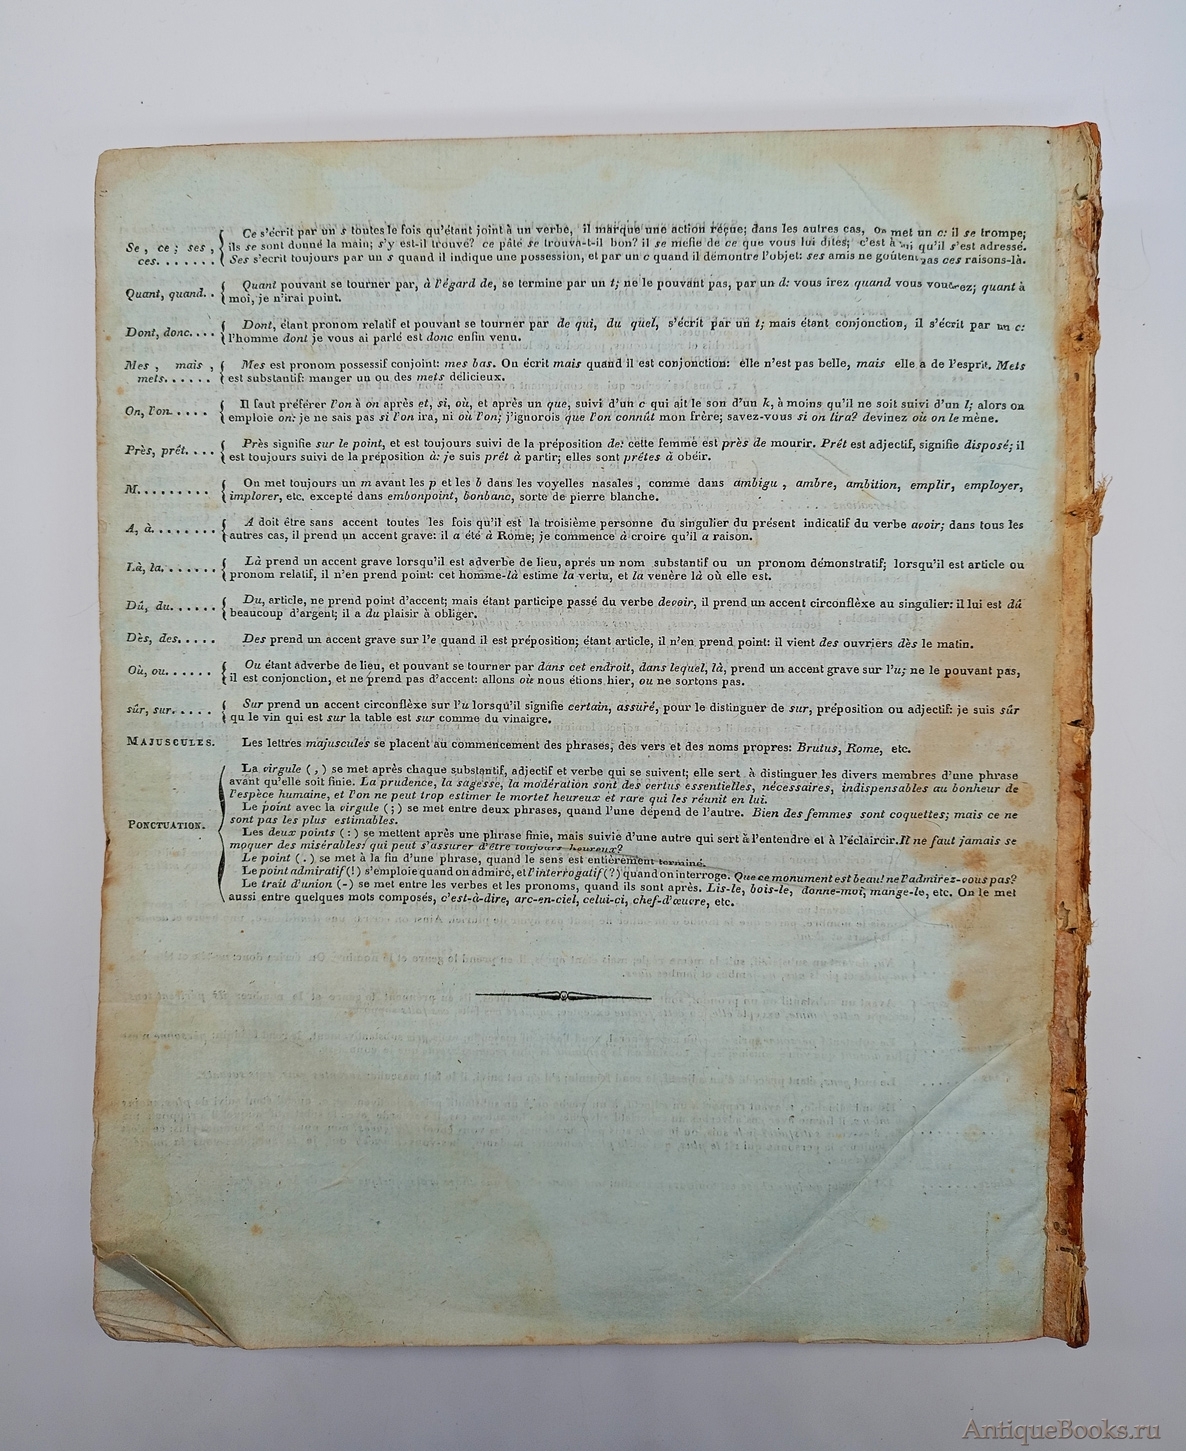 Se, ce; ses, ces....... { Ce s'écrit par un s toutes le fois qu'étant joint à un verbe, il marque une action reçue; dans les autres cas, on met un c: il se trompe;
ils se sont donné la main; s'y est-il trouvé? ce pâté se trouva-t-il bon? il se méfie de ce que vous lui dites; c'est à qu'il s'est adressé.
Ses s'écrit toujours par un s quand il indique une possession, et par un c quand il démontre l'objet: ses amis ne goûtent pas ces raisons-là.
Quant, quand.. { Quant pouvant se tourner par, à l'égard de, se termine par un t; ne le pouvant pas, par un d: vous irez quand vous voudrez; quant à
moi, je n'irai point.
Dont, donc.... { Dont, étant pronom relatif et pouvant se tourner par de qui, du quel, s'écrit par un t; mais étant conjonction, il s'écrit par un c:
l'homme dont je vous ai parlé est donc enfin venu.
Mes, mais, mets...... { Mes est pronom possessif conjoint: mes bas. On écrit mais quand il est conjonction: elle n'est pas belle, mais elle a de l'esprit. Mets
est substantif: manger un ou des mets délicieux.
On, l'on..... { Il faut préférer l'on à on après et, si, où, et après un que, suivi d'un c qui ait le son d'un k, à moins qu'il ne soit suivi d'un l; alors on
emploie on: je ne sais pas si l'on ira, ni où l'on; j'ignorois que l'on connût mon frère; savez-vous si on lira? devinez où on le mène.
Près, prêt.... { Près signifie sur le point, et est toujours suivi de la préposition de: cette femme est près de mourir. Prêt est adjectif, signifie disposé; il
est toujours suivi de la préposition à: je suis prêt à partir; elles sont prêtes à obéir.
M......... { On met toujours un m avant les p et les b dans les voyelles nasales, comme dans ambigu, ambre, ambition, emplir, employer,
implorer, etc. excepté dans embonpoint, bonbanc, sorte de pierre blanche.
A, à........ { A doit être sans accent toutes les fois qu'il est la troisième personne du singulier du présent indicatif du verbe avoir; dans tous les
autres cas, il prend un accent grave: il a été à Rome; je commence à croire qu'il a raison.
Là, la....... { Là prend un accent grave lorsqu'il est adverbe de lieu, aprés un nom substantif ou un pronom démonstratif; lorsqu'il est article ou
pronom relatif, il n'en prend point: cet homme-là estime la vertu, et la venère là où elle est.
Dû, du...... { Du, article, ne prend point d'accent; mais étant participe passé du verbe devoir, il prend un accent circonflèxe au singulier: il lui est dû
beaucoup d'argent; il a du plaisir à obliger.
Dès, des..... Des prend un accent grave sur l'e quand il est préposition; étant article, il n'en prend point: il vient des ouvriers dès le matin.
Où, ou...... { Ou étant adverbe de lieu, et pouvant se tourner par dans cet endroit, dans lequel, là, prend un accent grave sur l'u; ne le pouvant pas,
il est conjonction, et ne prend pas d'accent: allons où nous étions hier, ou ne sortons pas.
sûr, sur..... { Sur prend un accent circonflèxe sur l'u lorsqu'il signifie certain, assuré, pour le distinguer de sur, préposition ou adjectif: je suis sûr
qu le vin qui est sur la table est sur comme du vinaigre.
MAJUSCULES. Les lettres majuscules se placent au commencement des phrases, des vers et des noms propres: Brutus, Rome, etc.
PONCTUATION. { La virgule (,) se met après chaque substantif, adjectif et verbe qui se suivent; elle sert à distinguer les divers membres d'une phrase
avant qu'elle soit finie. La prudence, la sagesse, la modération sont des vertus essentielles, nécessaires, indispensables au bonheur de
l'espèce humaine, et l'on ne peut trop estimer le mortel heureux et rare qui les réunit en lui.
Le point avec la virgule (;) se met entre deux phrases, quand l'une dépend de l'autre. Bien des femmes sont coquettes; mais ce ne
sont pas les plus estimables.
Les deux points (:) se mettent après une phrase finie, mais suivie d'une autre qui sert à l'entendre et à l'éclaircir. Il ne faut jamais se
moquer des misérables: qui peut s'assurer d'être toujours heureux?
Le point (.) se met à la fin d'une phrase, quand le sens est entièrement terminé.
Le point admiratif (!) s'emploie quand on admire, et l'interrogatif (?) quand on interroge. Que ce monument est beau! ne l'admirez-vous pas?
Le trait d'union (-) se met entre les verbes et les pronoms, quand ils sont après. Lis-le, bois-le, donne-moi, mange-le, etc. On le met
aussi entre quelques mots composés, c'est-à-dire, arc-en-ciel, celui-ci, chef-d'œuvre, etc.
AntiqueBooks.ru